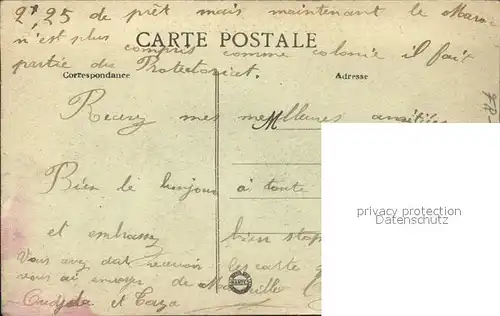 2f,25 de prêt mais maintenant le Maroc
n'est plus compris comme colonie il fait
CARTE POSTALE
partie du Protectoriat.
Correspondance
Adresse
Recevez mes meilleures amitiés
Bien le bonjour à toute
et embrassez bien
Vous avez dû recevoir les carte que
vous ai envoyé de Marseille
Oudjda et Taza
privacy protection